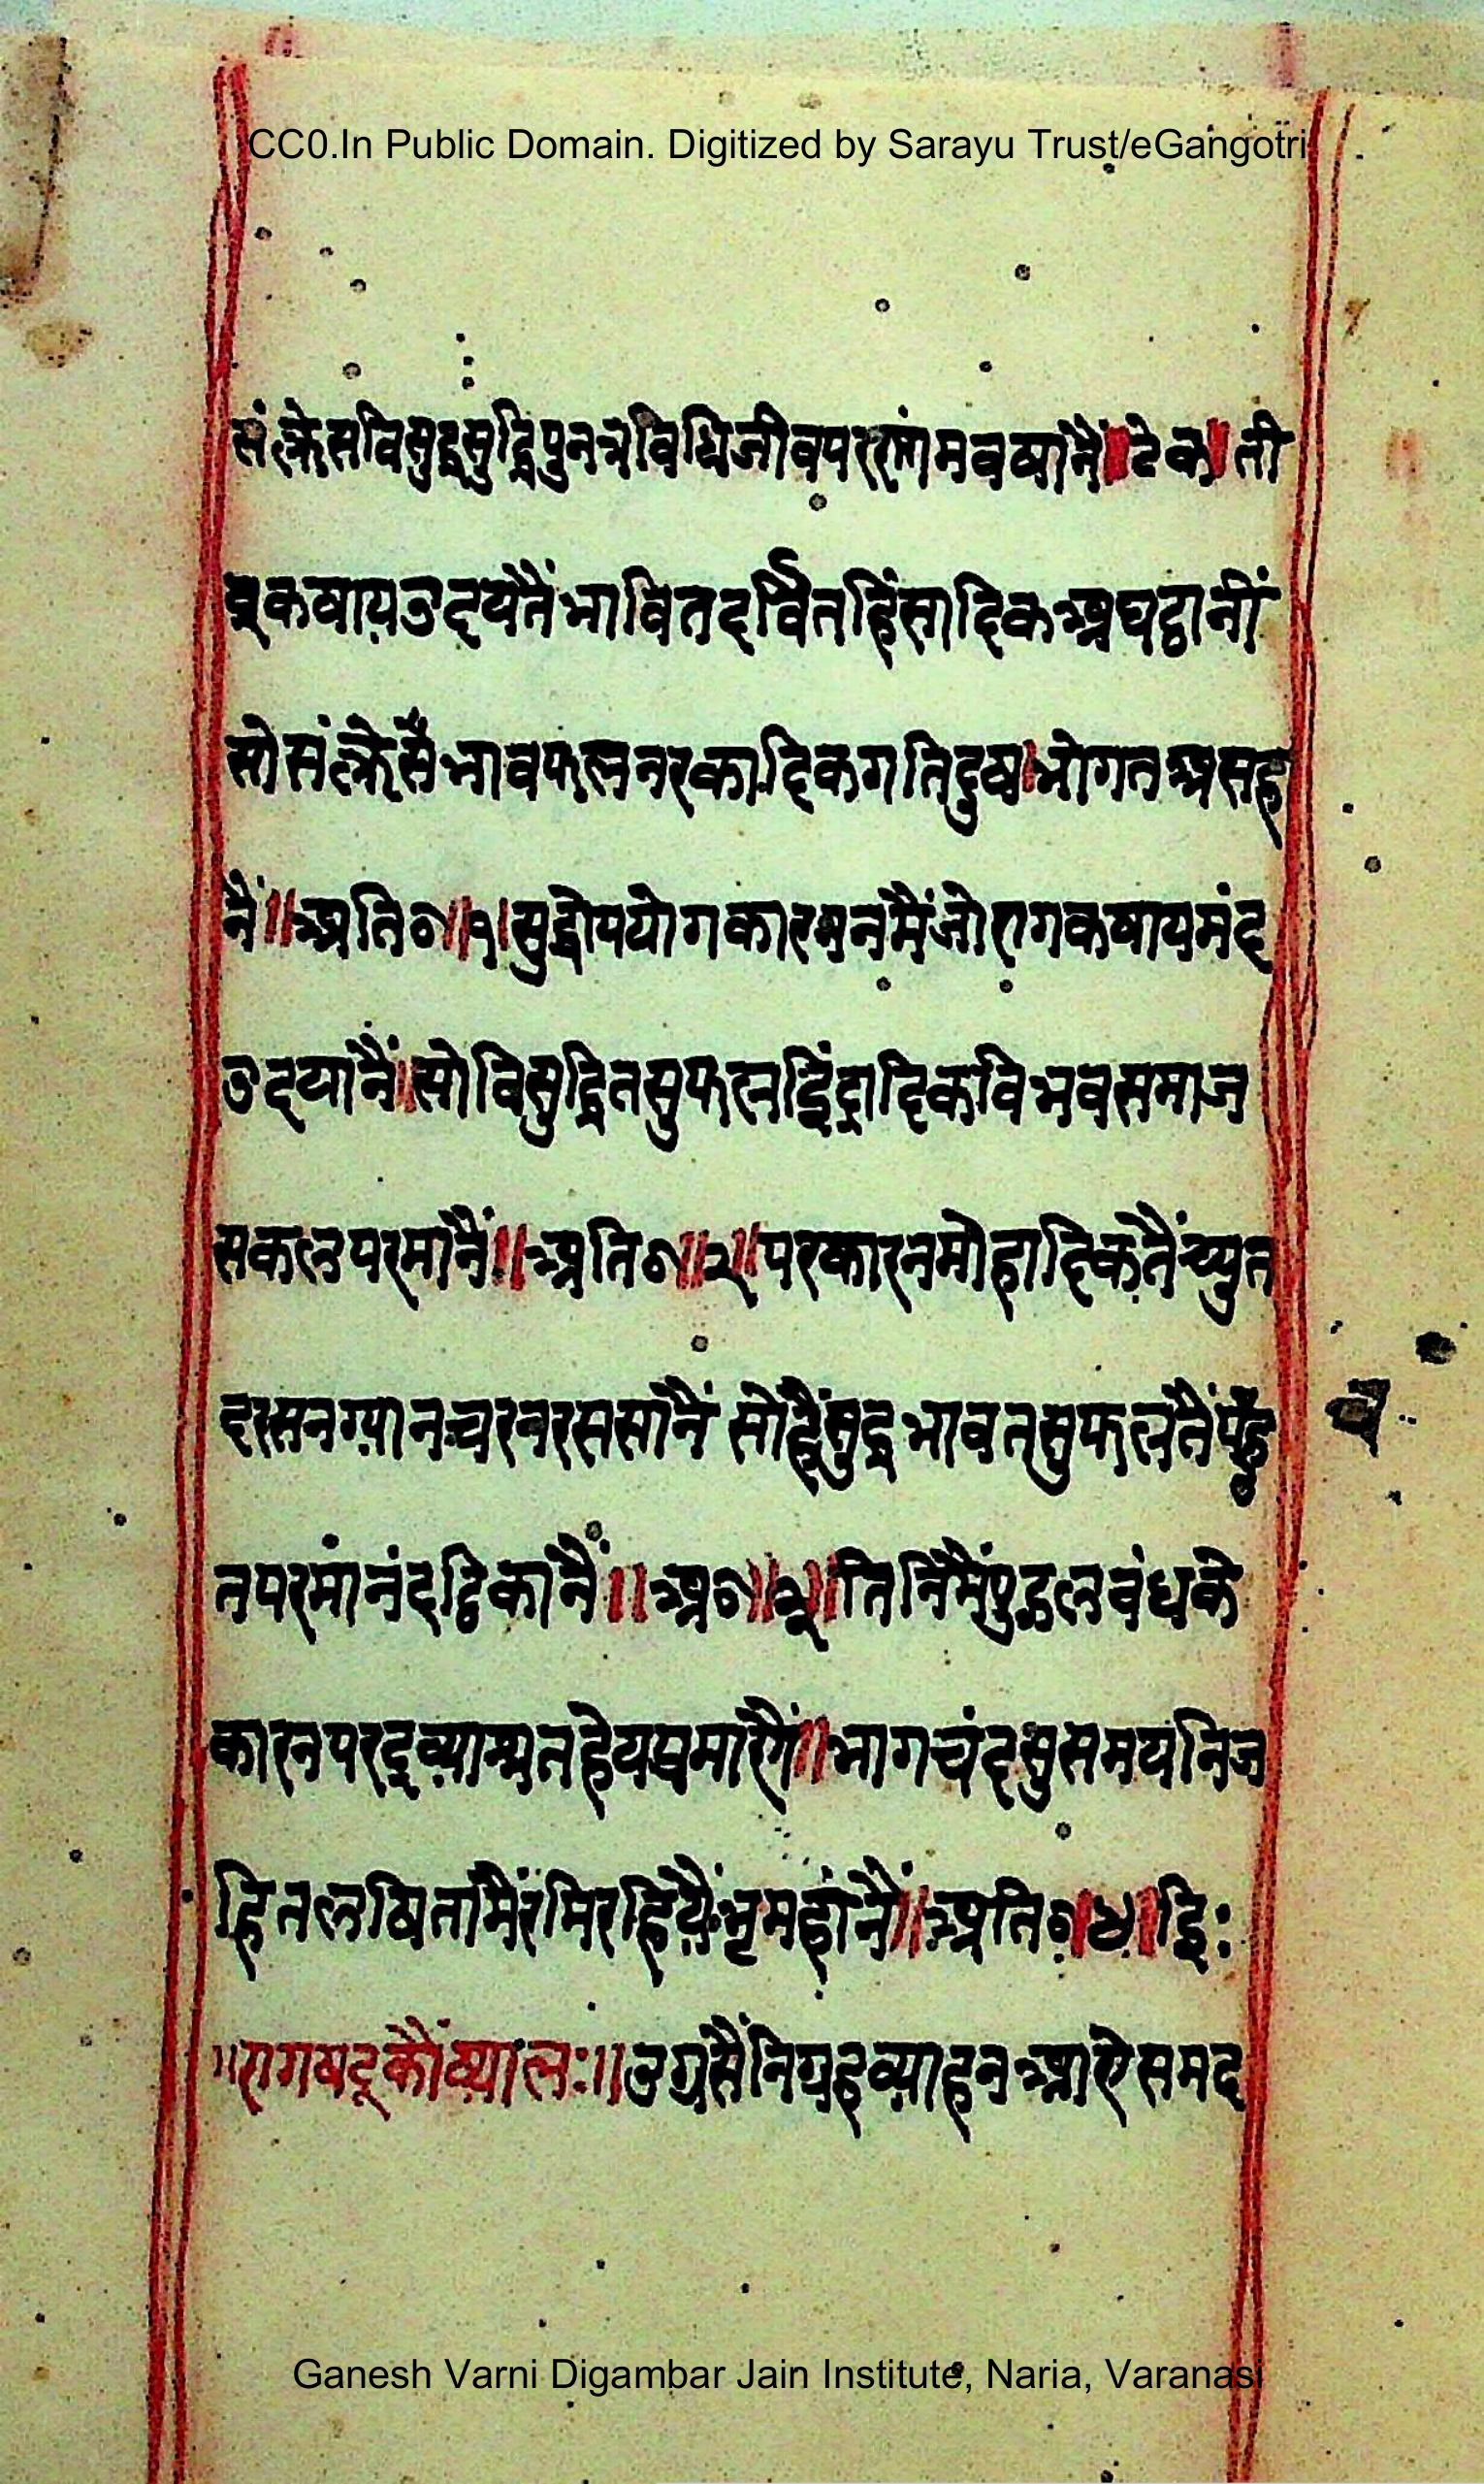 CC0.In Public Domain. Digitized by Sarayu Trust/eGangotri
संक्लेसविसुद्धसुद्धिपुनत्रविधिजीवपररांमवषांनैं॥टेक॥ती
व्रकषायउदयेतैंभावितदर्वितहिंसादिकअघठानीं
सोसंक्लेसैभावफलनरकादिकगतिदुष।भोगतअसह
नैं॥अति०॥१॥सुद्धोपयोगकारननमैंजोरागकषायमंद
उदयांनैं।सोविसुद्धितसुफलइंद्रादिकविभवसमाज
सकलपरमांनैं॥अति०॥२॥परकारनमोहादिकतैंच्युत
दरसनग्यानचरनरससांनैं सोहैंसुद्धभावतसुफलतैंपहु
च
तपरमांनंदठिकांनैं॥अ०॥३॥तिनिंमैंपुद्गलबंधके
कारनपरद्रव्याश्रितहेयप्रमांनैं॥भागचंदसुसमयनिज
हितलषितांमैंरमिरहियैंभ्रमहांनैं॥अति०॥४॥इति:
॥रागषटकौंष्याल:॥उग्रसैंनिग्रहव्याहनआऐसमद
Ganesh Varni Digambar Jain Institute, Naria, Varanasi